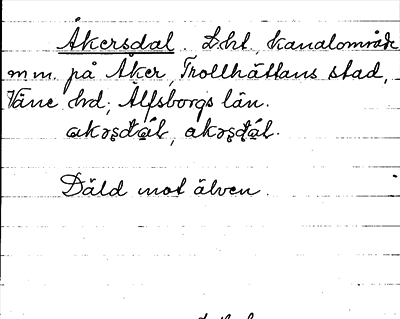 Åkersdal. Lht, kanalområde
m m. på Åker, Trollhättans stad,
Väne hd; Älfsborgs län.
Däld mot älven.